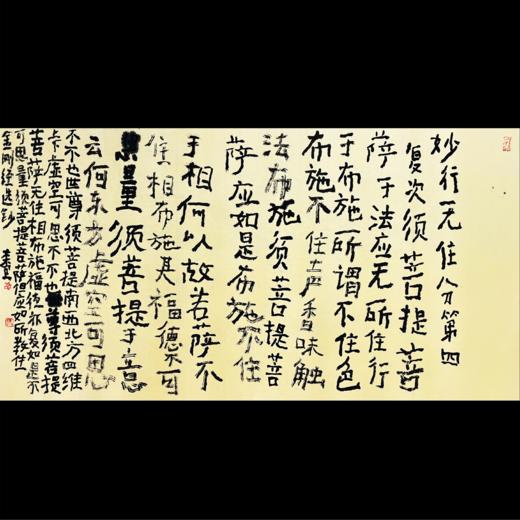 妙行无住分第四
复次须菩提菩
萨于法应无所住行
于布施所谓不住色
布施不住声香味触
法布施须菩提菩
萨应如是布施不住
于相何以故若萨不
住相布施其福德不可
思量须菩提于意
云何东方虚空可思
不不也世尊须菩提南西北方四维
上下虚空可思不不也尊须菩提
菩萨无住相布施福德亦复如是不
可思量须菩提菩萨但应如所教住
金刚经选钞